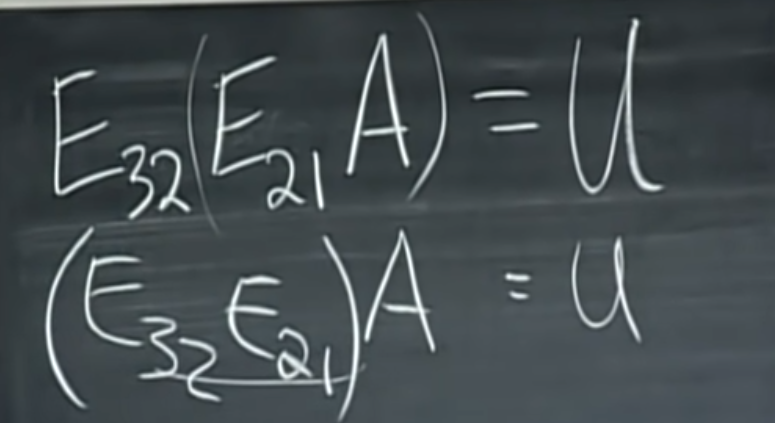 E₃₂(E₂₁A) = U
(E₃₂E₂₁)A = U